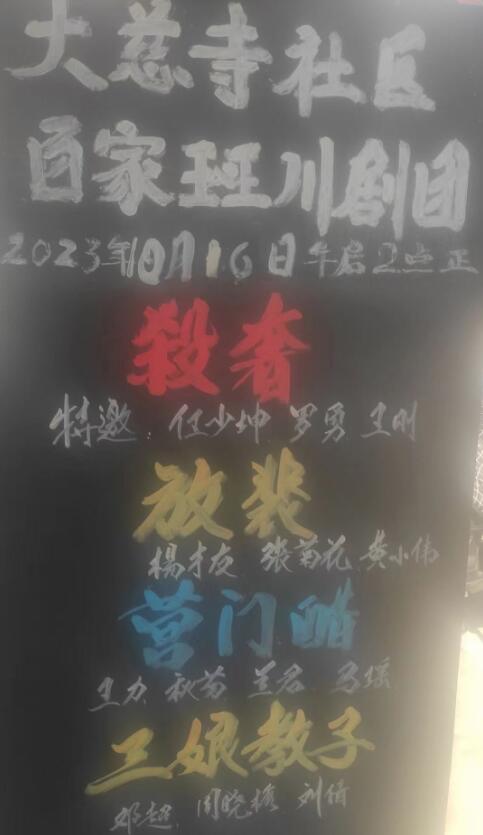 大慈寺社区
百家班川剧团
2023年10月16日午后2点正
殺奢
特邀：任少坤 罗勇 王刚
放裴
楊才友 張菊花 黄小伟
营门醋
王力 秋菊 兰君 马瑶
三娘教子
邓超 周晓梅 刘倩